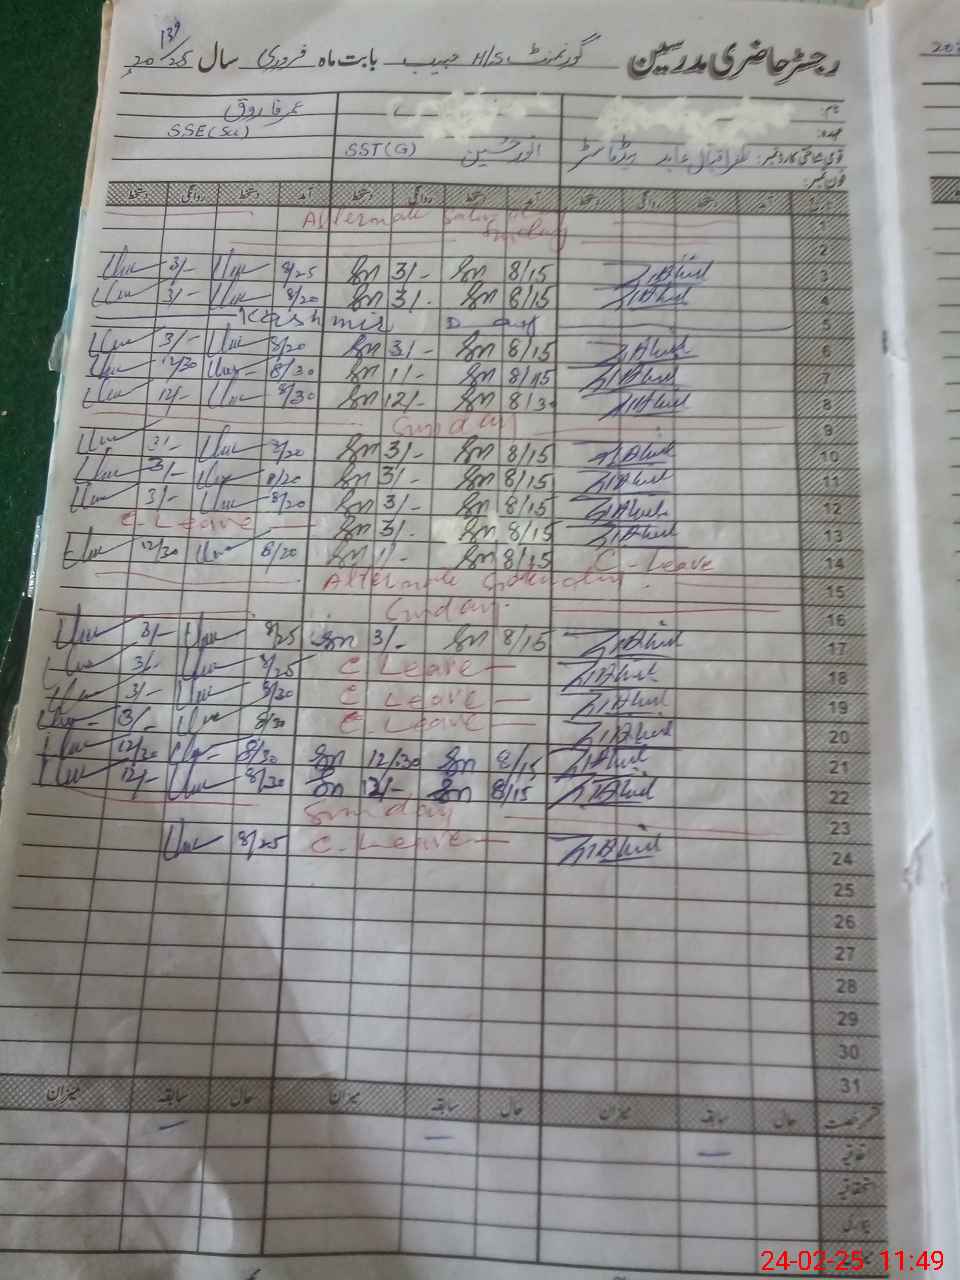 رجسٹر حاضری مدرسین گورنمنٹ H/S حبیب بابت ماہ فروری سال 2025
139
نام: عمر فاروق
عہدہ: SSE(Sci)
قومی شناختی کارڈ نمبر: ظفر اقبال عابد ہیڈماسٹر انور حسین SST(G)
فون نمبر:
آمد دستخط روانگی دستخط آمد دستخط روانگی دستخط آمد دستخط روانگی دستخط
1 Alternate Saturday
2 Sunday
3 8/15 3/- 8/25 3/-
4 8/15 3/- 8/20 3/-
5 Kashmir Day
6 8/15 3/- 8/20 3/-
7 8/15 1/- 8/30 12/30
8 8/30 12/- 8/30 12/-
9 Sunday
10 8/15 3/- 8/20 3/-
11 8/15 3/- 8/20 3/-
12 8/15 3/- 8/20 3/-
13 8/15 3/- C Leave
14 C-Leave 8/15 1/- 8/20 12/30
15 Alternate Saturday
16 Sunday
17 8/15 3/- 8/25 3/-
18 C Leave 8/25 3/-
19 C Leave 8/30 3/-
20 C Leave 8/30 3/-
21 8/15 12/30 8/30 12/30
22 8/15 12/- 8/30 12/-
23 Sunday
24 C. Leave 8/25
25
26
27
28
29
30
31
حال سابقہ میزان حال سابقہ میزان حال سابقہ میزان
اتفاقیہ
استحقاقیہ
24-02-25 11:49